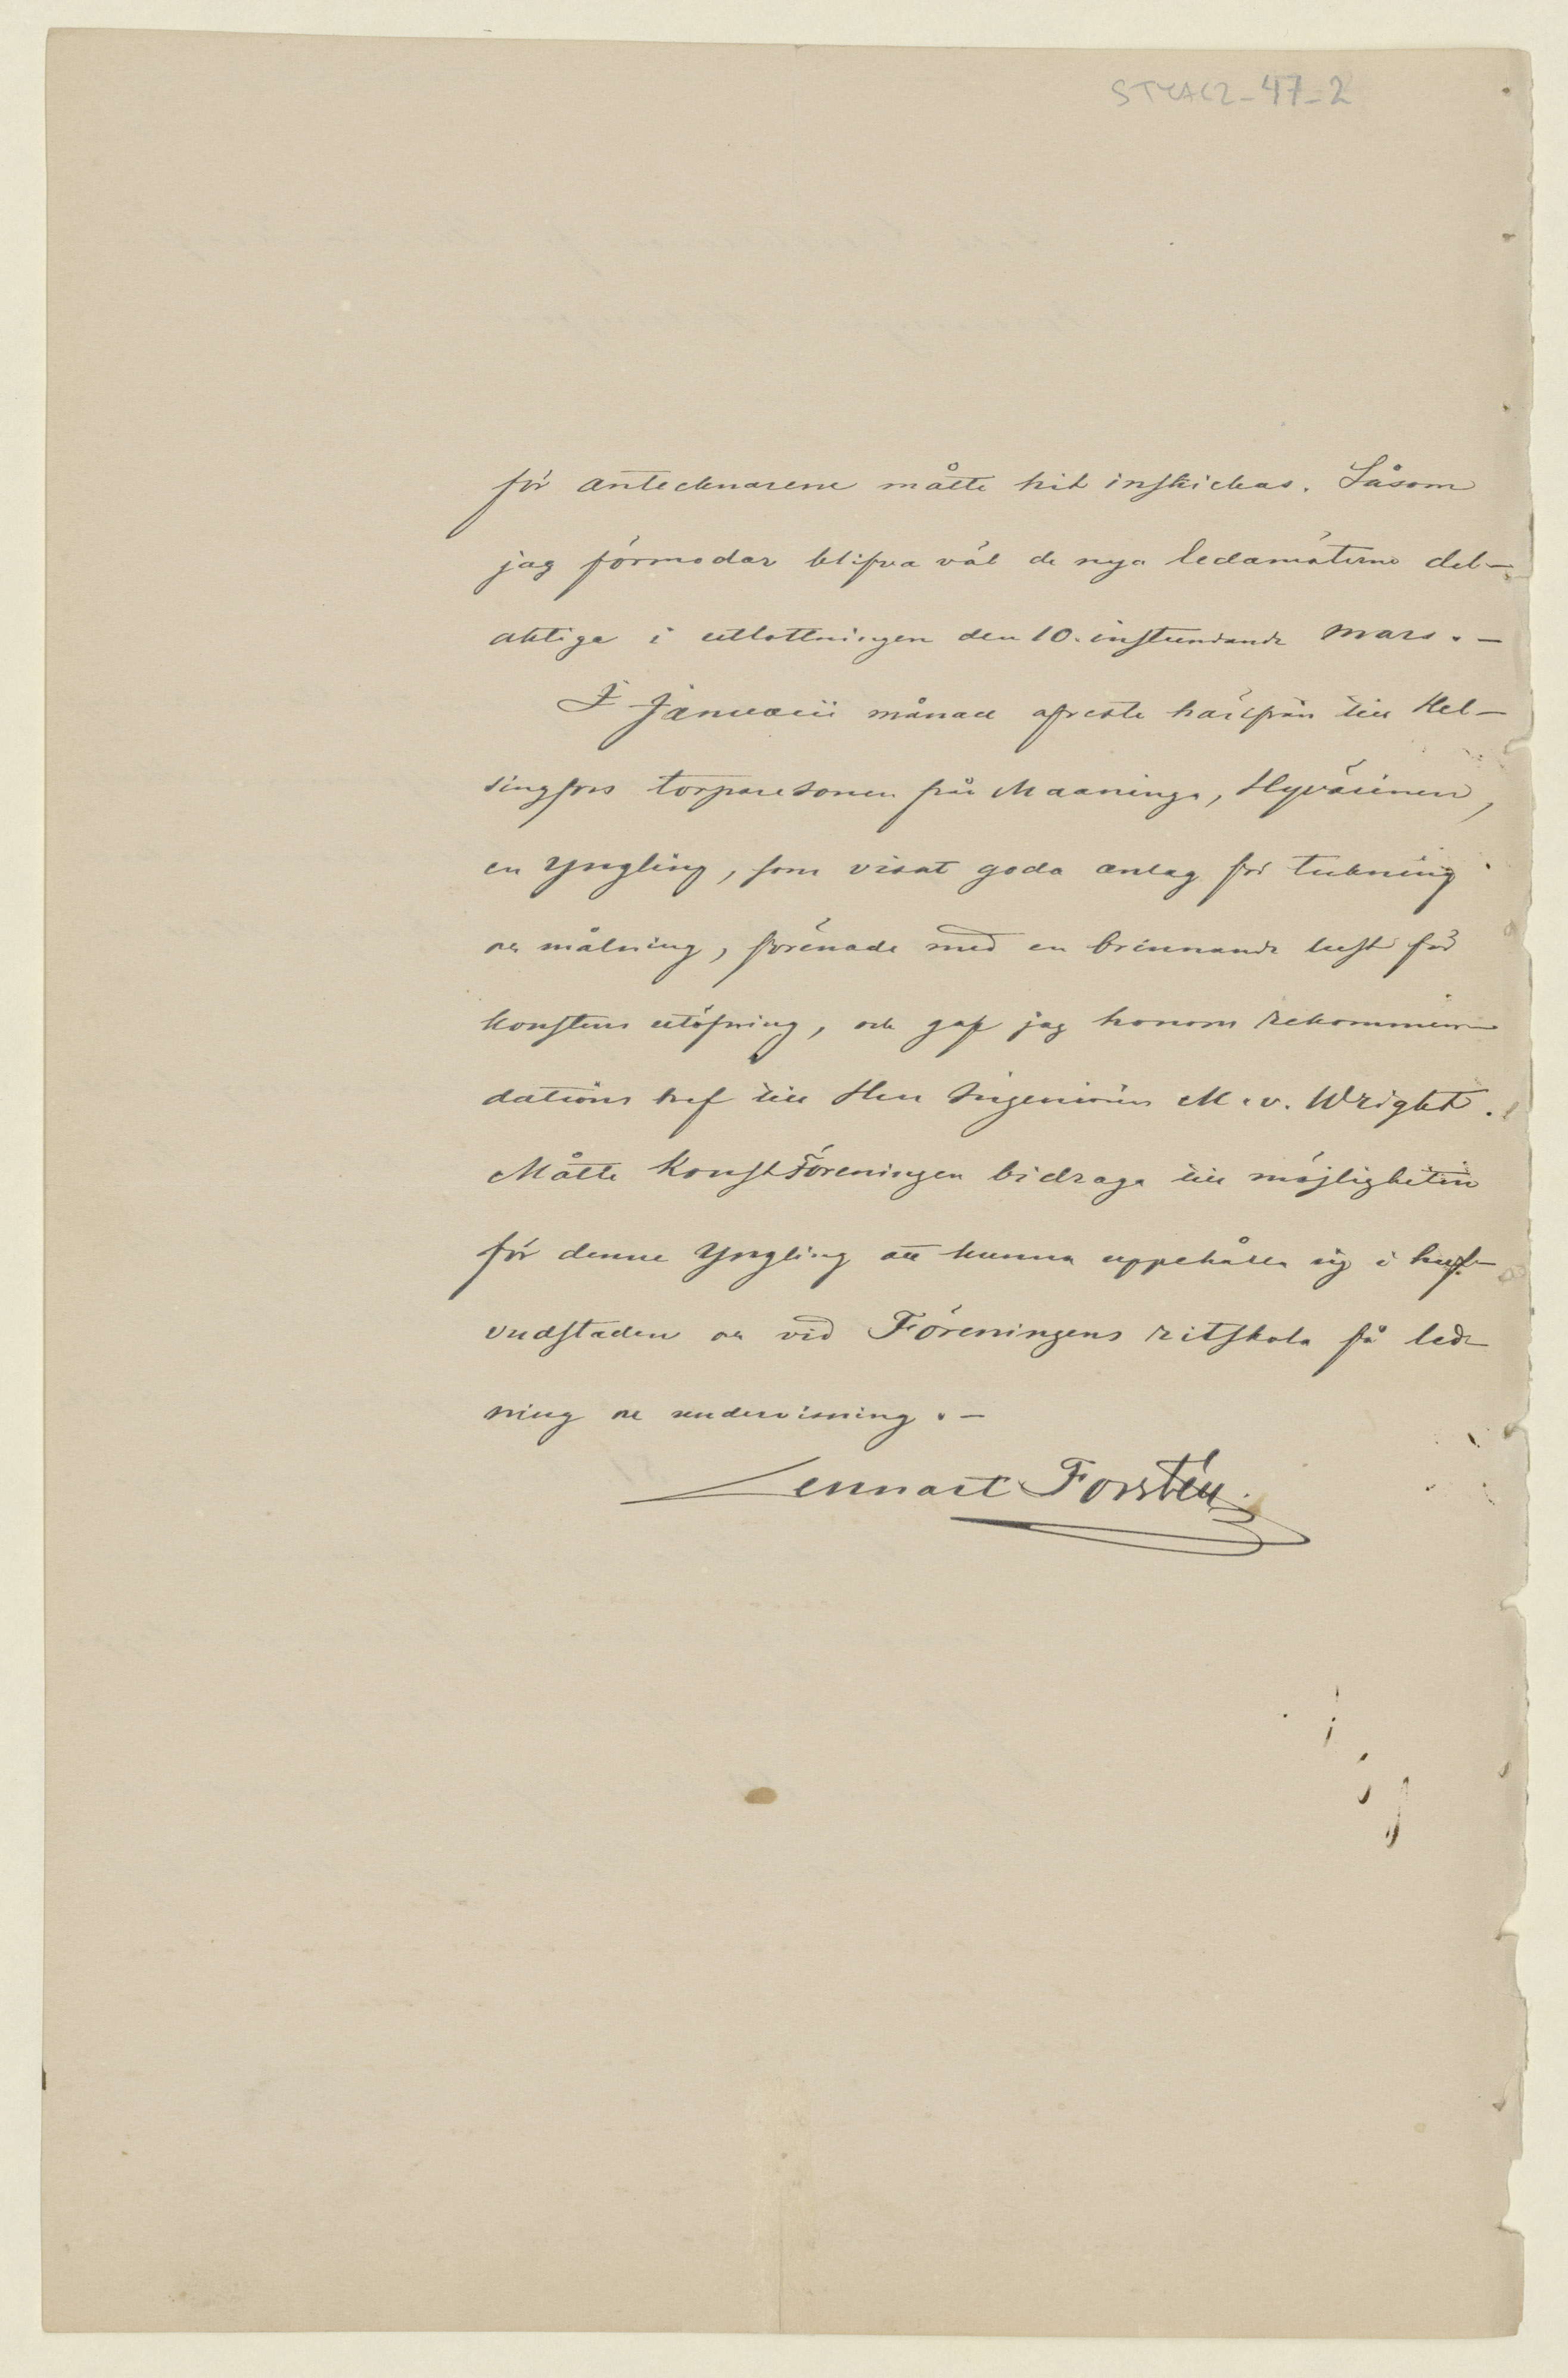 STYAC2-47-2
för antecknarene måtte hit inskickas. Såsom
jag förmodar blifva väl de nya ledamöterne del-
aktige i utlottningen den 10. instundande Mars. -
I Januarii månad afreste härifrån till Hel-
singfors torparesonen från Maaninga, Hyvärinen,
en Yngling, som visat goda anlag för teckning
och målning, förenade med en brinnande lust för
konstens utöfning, och gaf jag honom rekommen-
dations bref till Herr Ingeniören M. v. Wright.
Måtte KonstFöreningen bidraga till möjligheten
för denne Yngling att kunna uppehålla sig i huf-
vudstaden och vid Föreningens ritskola få led-
ning och undervisning. -
Lennart Forstén